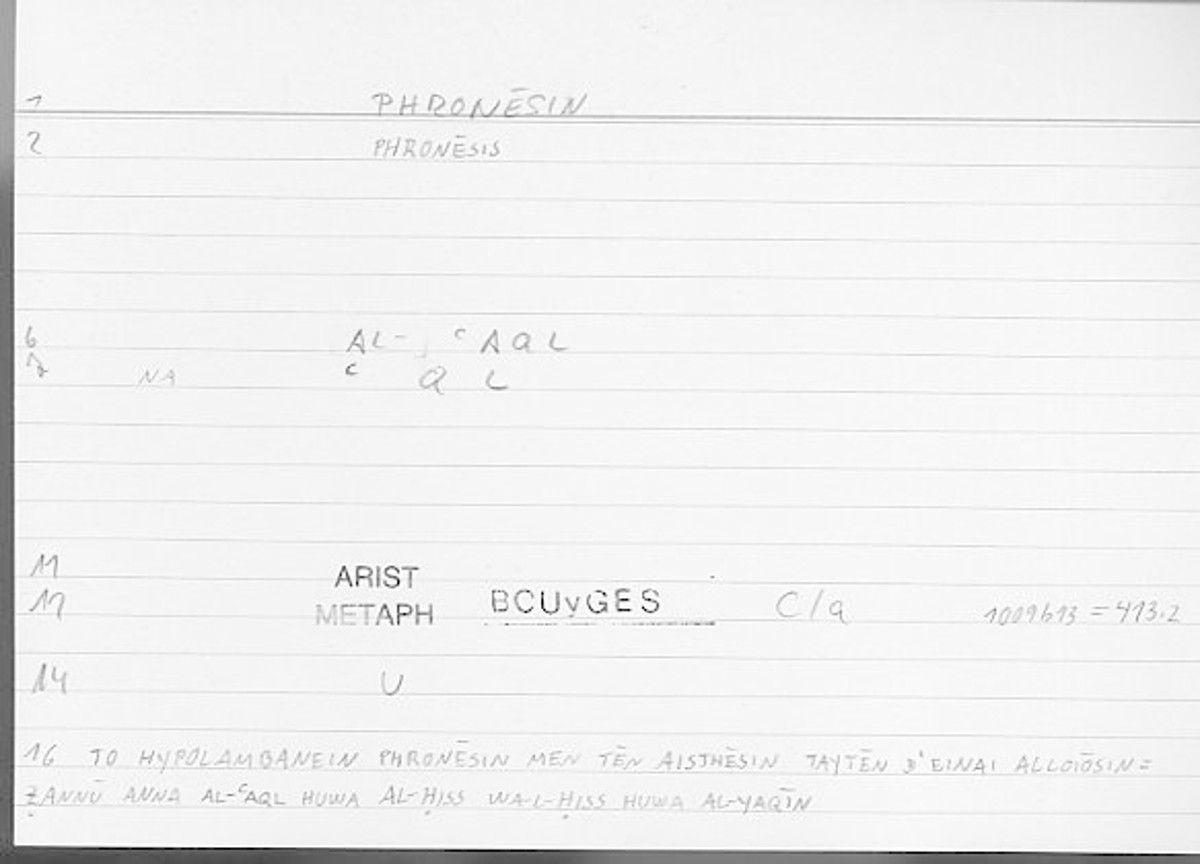 1 PHRONĒSIN
2 PHRONĒSIS
6 AL- ʿAQL
7 NA ʿ Q L
11 ARIST
12 METAPH BCUvGES C/a 1009b13 = 413.2
14 U
16 TO HYPOLAMBANEIN PHRONĒSIN MEN TĒN AISTHĒSIN TAYTĒN D'EINAI ALLOIŌSIN =
ẒANNŪ ANNA AL-ʿAQL HUWA AL-ḤISS WA-L-ḤISS HUWA AL-YAQĪN